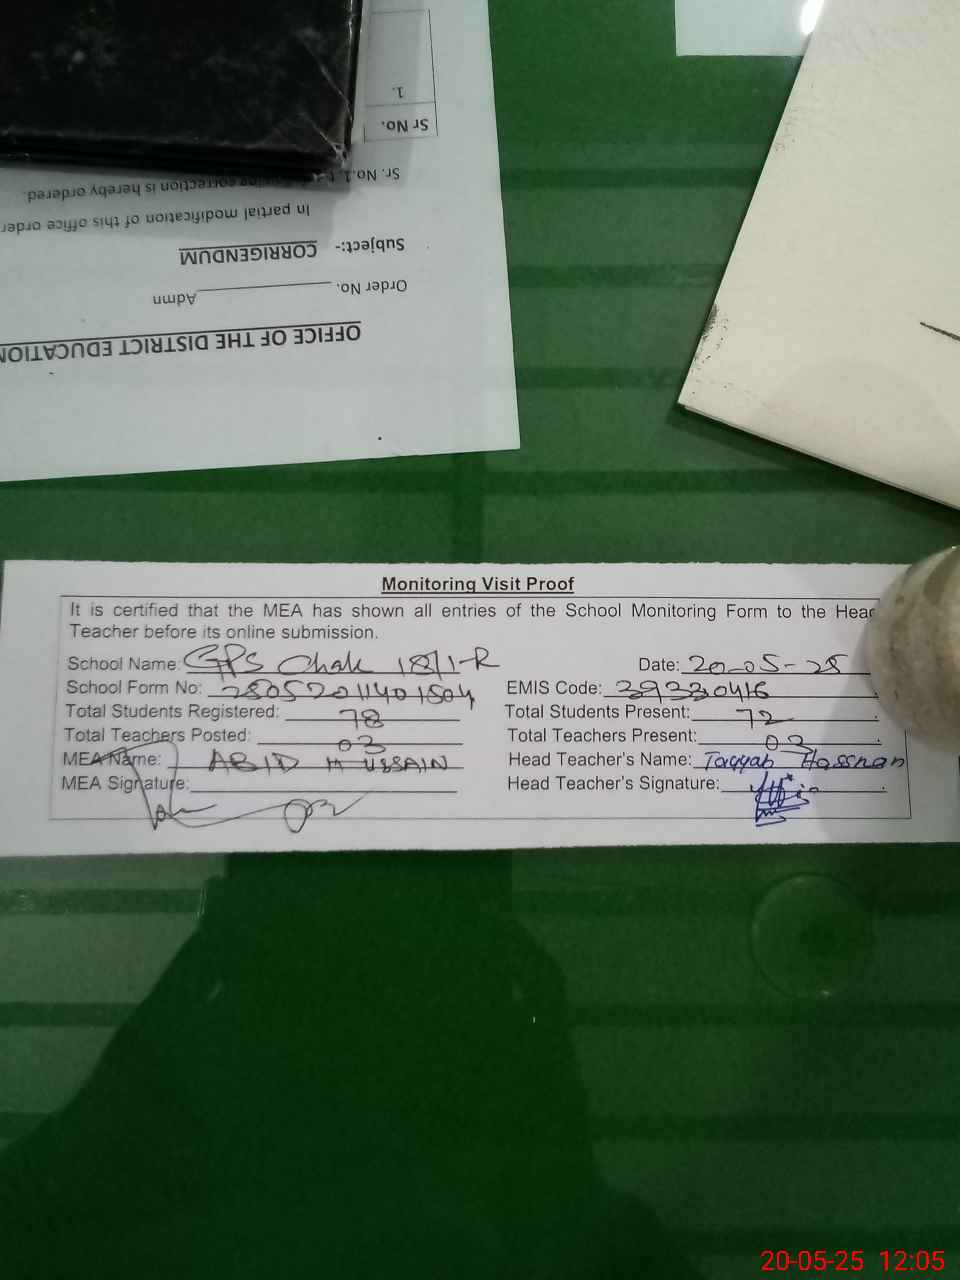 1.
Sr No.
Sr. No.1, correction is hereby ordered.
In partial modification of this office order
Subject:- CORRIGENDUM
Order No. Admn
OFFICE OF THE DISTRICT EDUCATION
Monitoring Visit Proof
It is certified that the MEA has shown all entries of the School Monitoring Form to the Head
Teacher before its online submission.
School Name: GPS Chak 18/1-R Date: 20-05-25
School Form No: EMIS Code: 39330416
Total Students Registered: 78 Total Students Present: 72
Total Teachers Posted: 03 Total Teachers Present: 03
MEA Name: ABID HUSSAIN Head Teacher's Name: Tayyab Hassnan
MEA Signature: Head Teacher's Signature:
20-05-25 12:05